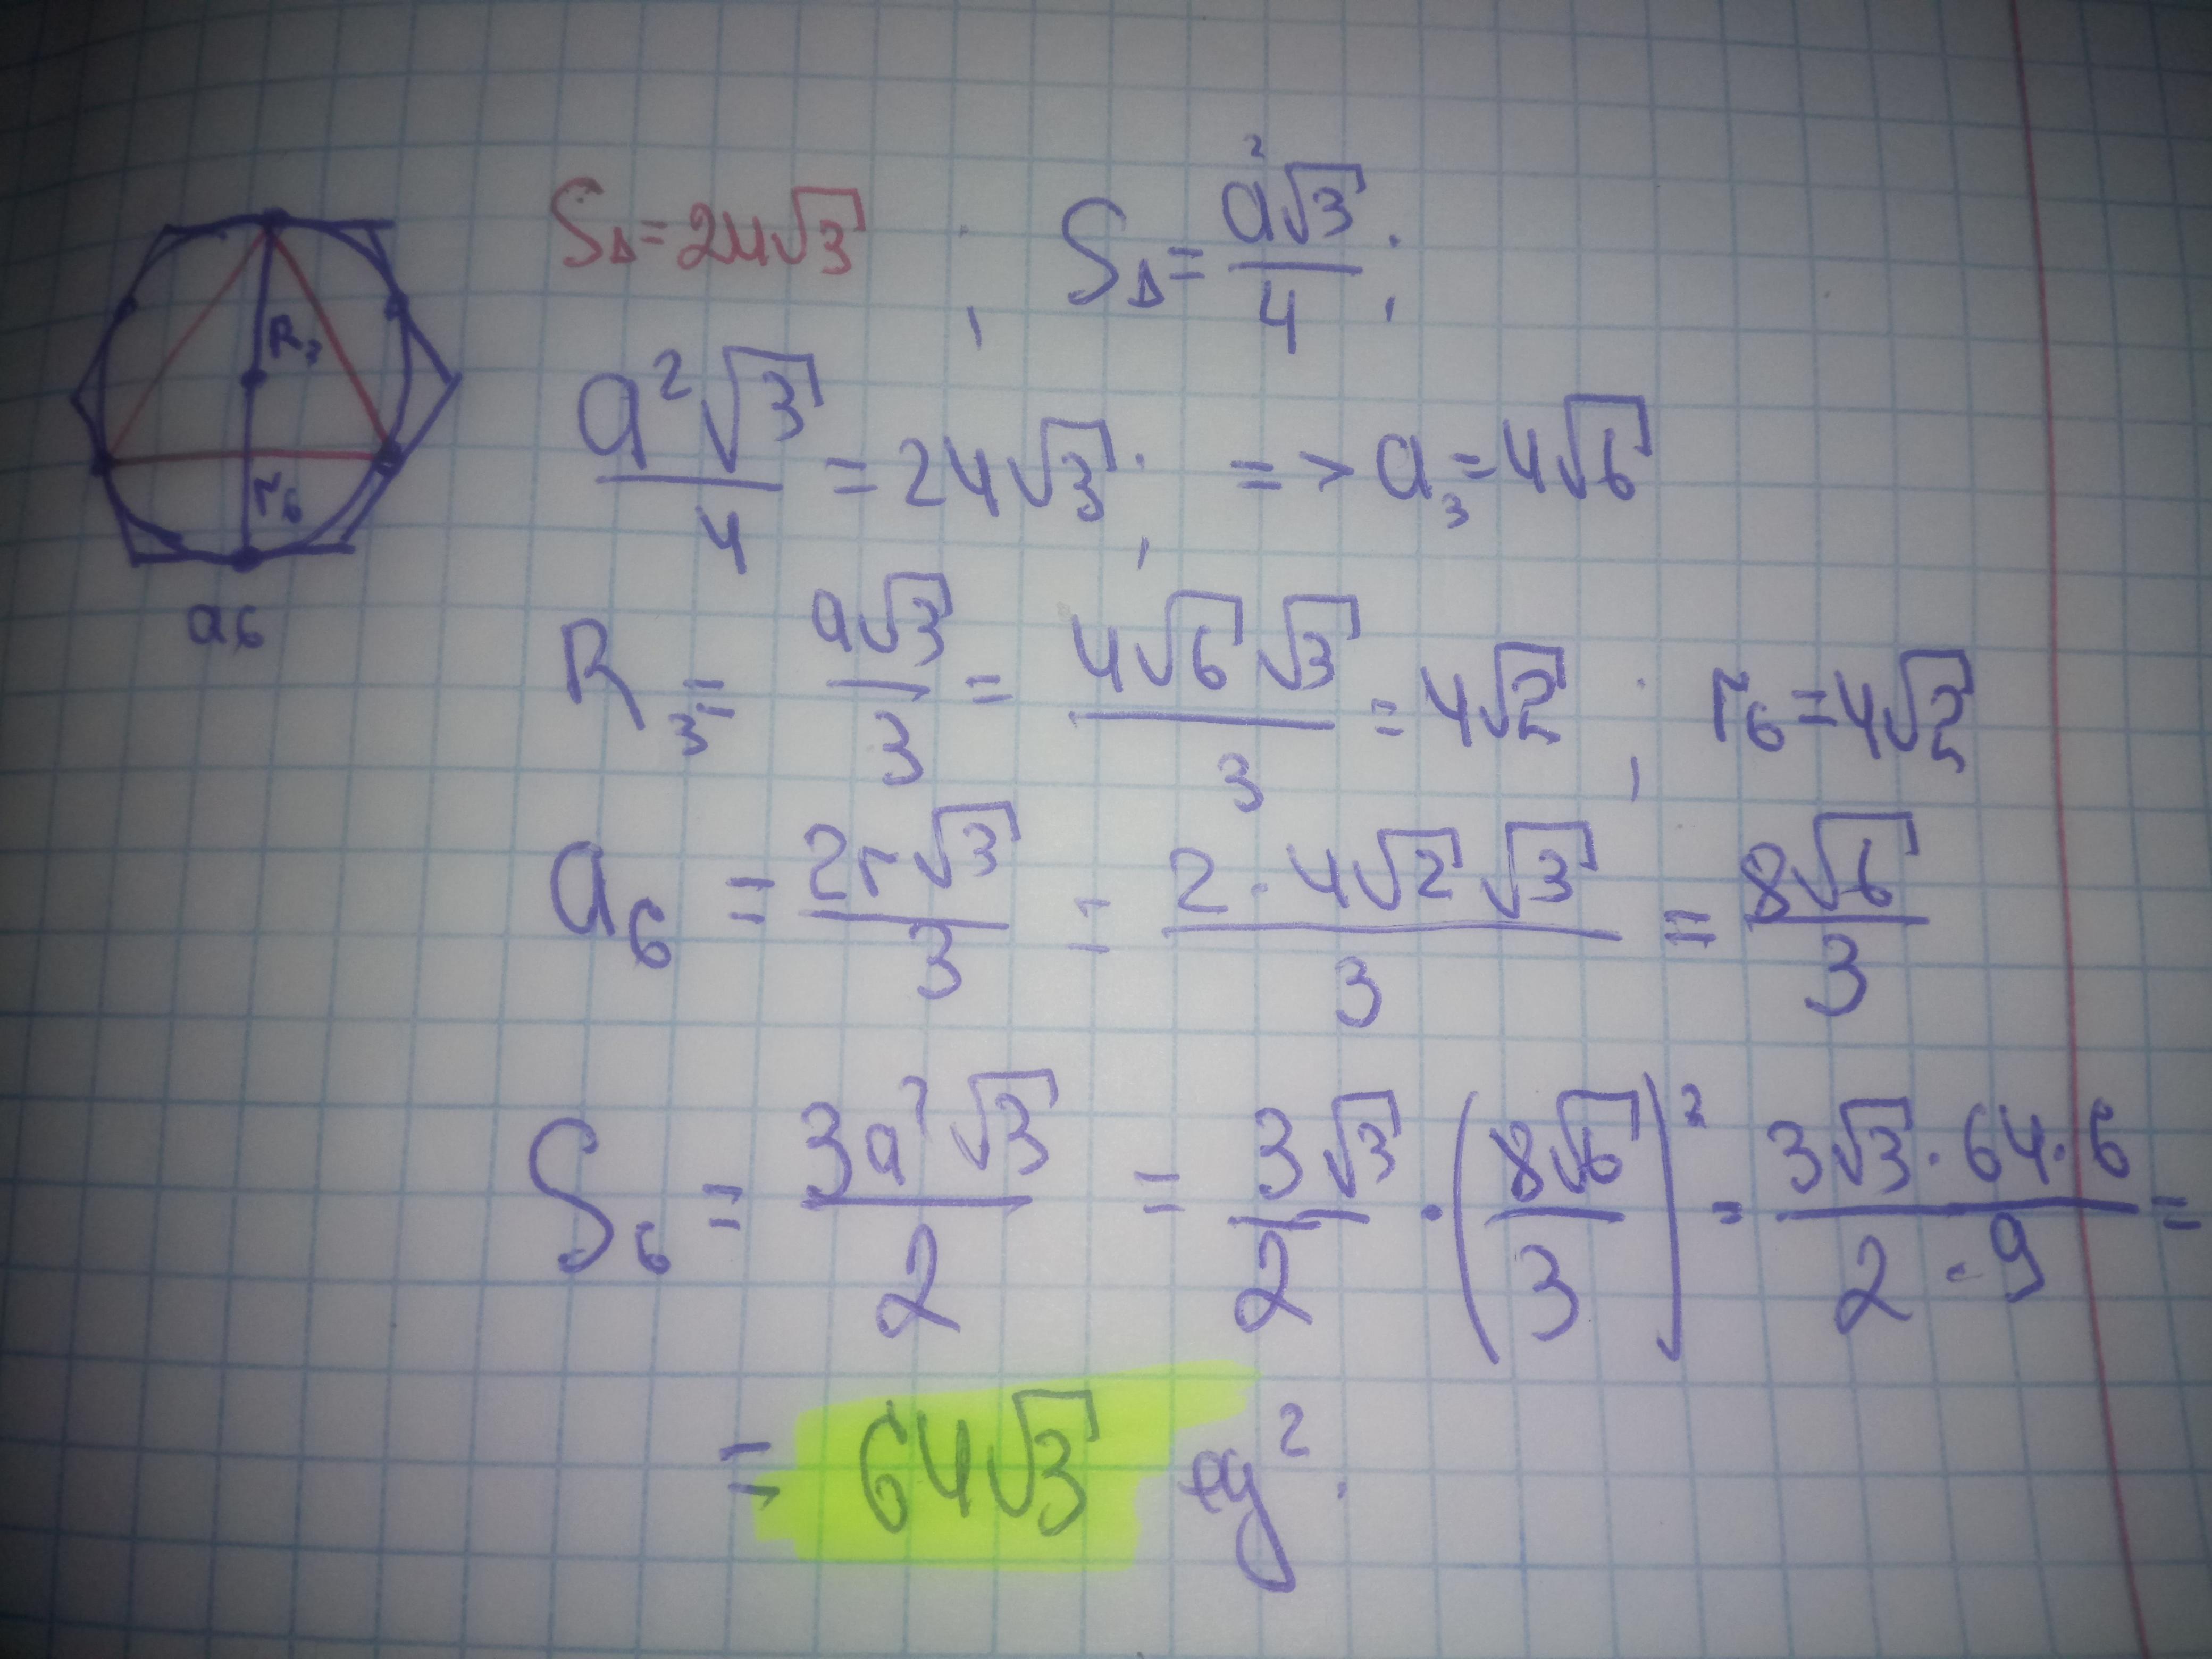 S△=24√3 ; S△=a²√3/4;
R₃
a²√3/4 = 24√3; => a₃=4√6
r₆
a₆
R₃= a√3/3 = 4√6√3/3 = 4√2 ; r₆=4√2
a₆ = 2r√3/3 = 2·4√2√3/3 = 8√6/3
S₆ = 3a²√3/2 = 3√3/2·(8√6/3)² = 3√3·64·6/2·9 =
= 64√3 ед².